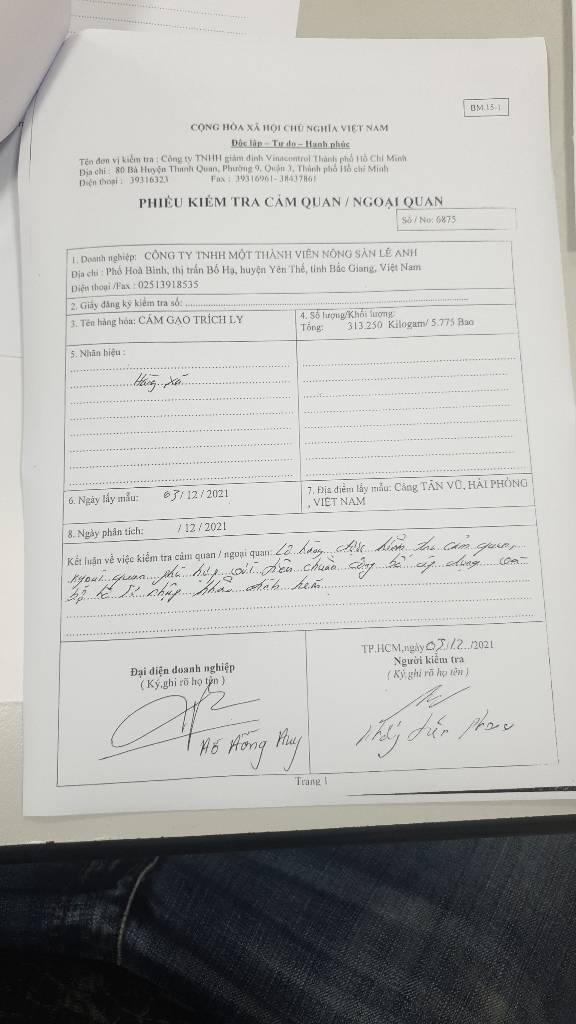 BM.15-1
CỘNG HÒA XÃ HỘI CHỦ NGHĨA VIỆT NAM
Độc lập – Tự do – Hạnh phúc
Tên đơn vị kiểm tra : Công ty TNHH giám định Vinacontrol Thành phố Hồ Chí Minh
Địa chỉ : 80 Bà Huyện Thanh Quan, Phường 9, Quận 3, Thành phố Hồ chí Minh
Điện thoại : 39316323 Fax : 39316961- 38437861
PHIẾU KIỂM TRA CẢM QUAN / NGOẠI QUAN
Số / No: 6875
1. Doanh nghiệp: CÔNG TY TNHH MỘT THÀNH VIÊN NÔNG SẢN LÊ ANH
Địa chỉ : Phố Hoà Bình, thị trấn Bố Hạ, huyện Yên Thế, tỉnh Bắc Giang, Việt Nam
Điện thoại /Fax : 02513918535
2. Giấy đăng ký kiểm tra số:
3. Tên hàng hóa: CÁM GẠO TRÍCH LY
4. Số lượng/Khối lượng:
Tổng: 313.250 Kilogam/ 5.775 Bao
5. Nhãn hiệu :
Hàng xá
6. Ngày lấy mẫu: 03/ 12 / 2021
7. Địa điểm lấy mẫu: Cảng TÂN VŨ, HẢI PHÒNG
, VIỆT NAM
8. Ngày phân tích: / 12 / 2021
Kết luận về việc kiểm tra cảm quan / ngoại quan: Lô hàng được kiểm tra cảm quan,
ngoại quan phù hợp với tiêu chuẩn công bố áp dụng và
hồ sơ nhập khẩu đính kèm
TP.HCM,ngày 03/12../2021
Đại diện doanh nghiệp
( Ký,ghi rõ họ tên )
Người kiểm tra
( Ký,ghi rõ họ tên )
Hồng Huy
Phong
Trang 1